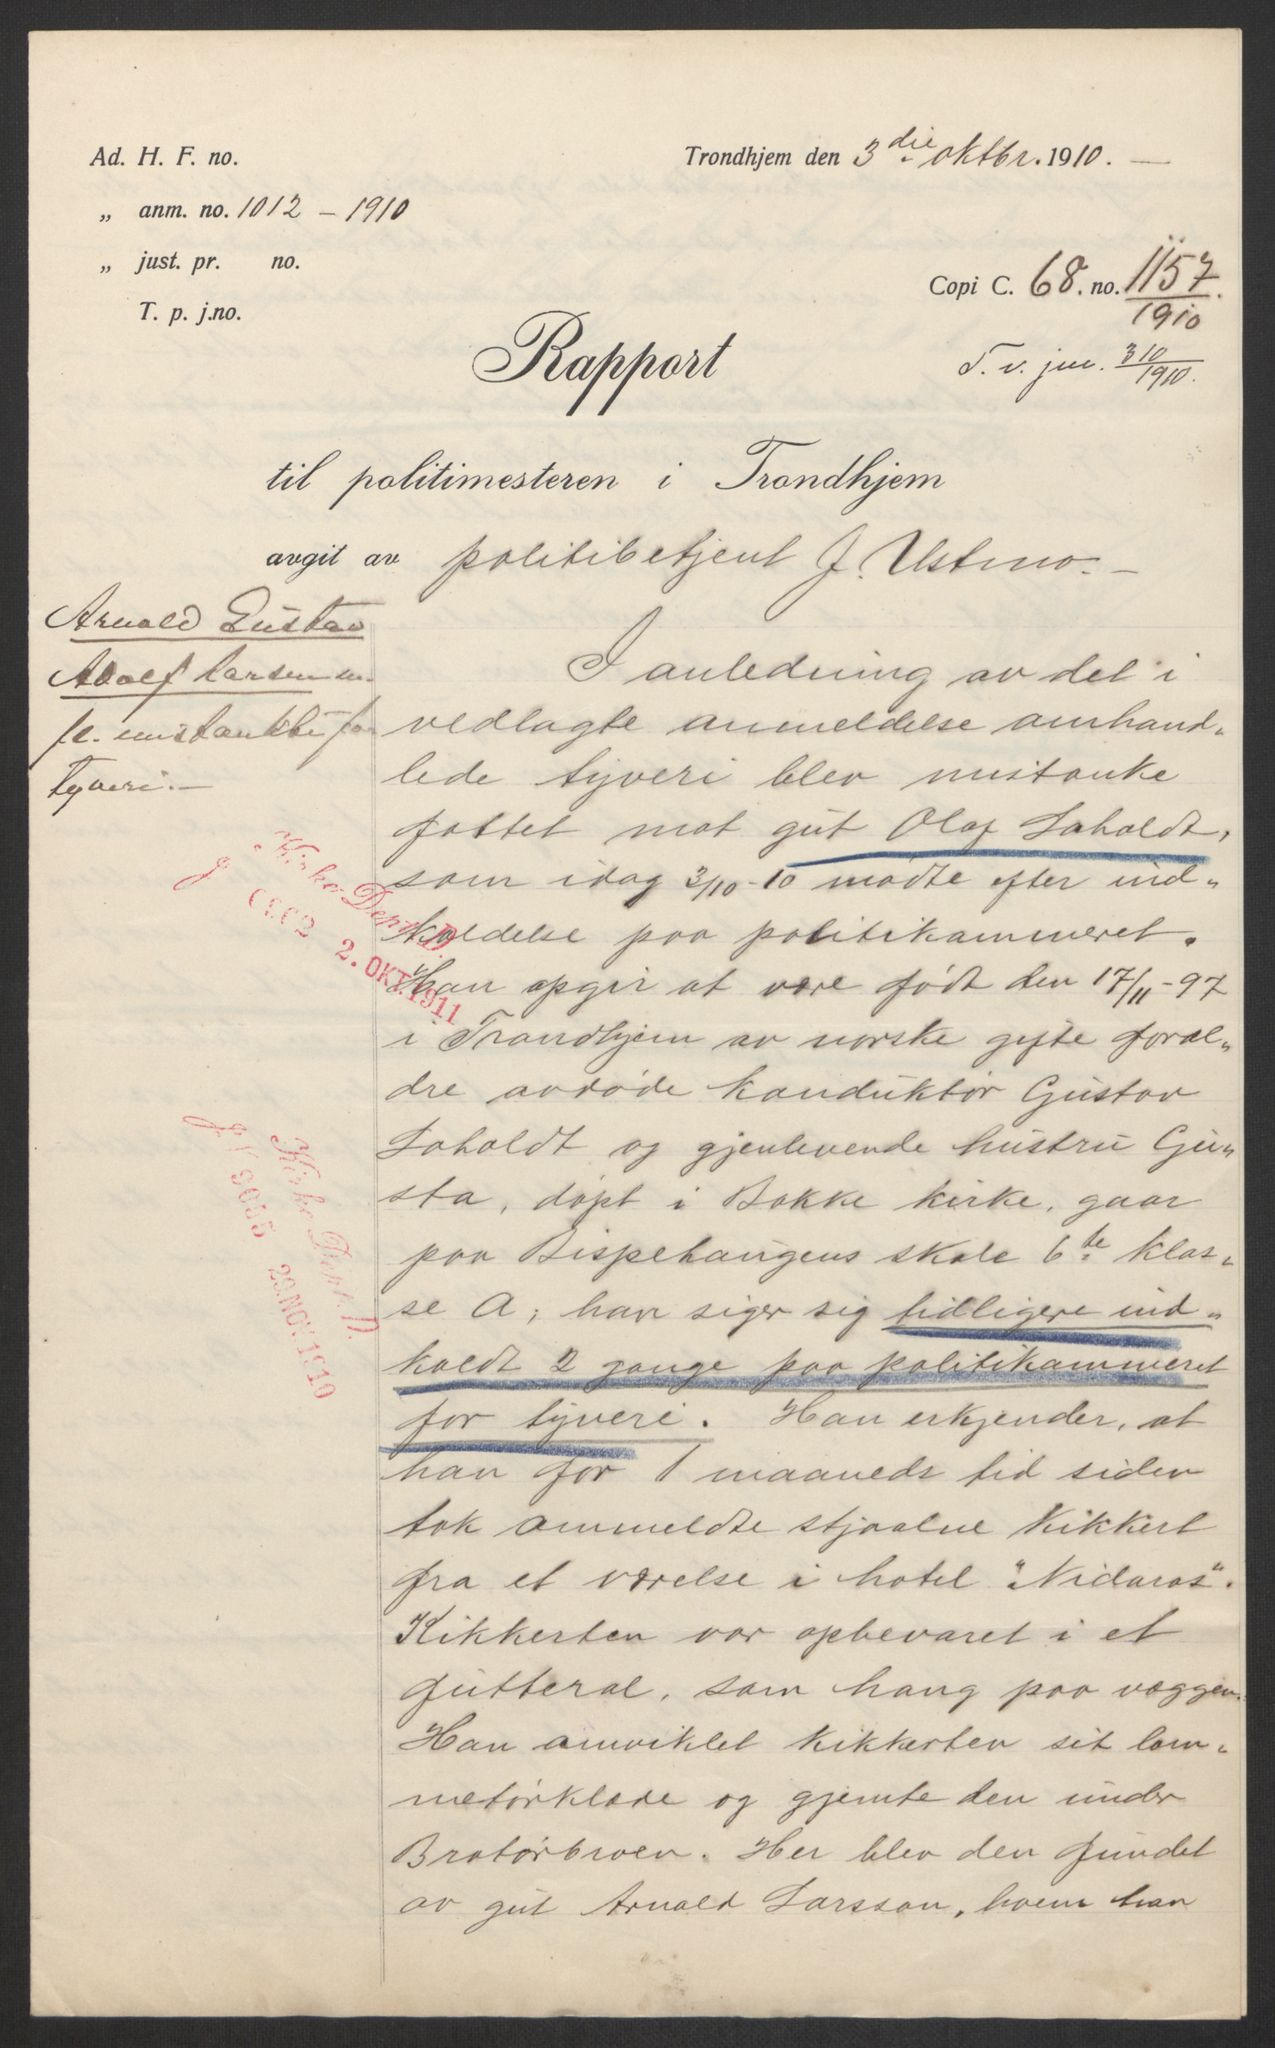 Ad. H. F. no.
Trondhjem den 3die oktbr. 1910. —
„ anm. no. 1012 – 1910
„ just. pr. no.
Copi C. 68. no. 1157/1910.
T. p. j.no.
Rapport
T. v. jur. 310/1910.
til politimesteren i Trondhjem
avgit av politibetjent J. Ustmo. —
Arnold Gustav
Adolf Larsen m.
fl. mistænkt for
tyveri. —
I anledning av det i
vedlagte anmeldelse omhand-
lede tyveri blev mistanke
fattet mot gut Olaf Loholdt,
som idag 3/10-10 mødte efter ind-
kaldelse paa politikammeret.
Han opgir at være født den 17/11-97
i Trondhjem av norske gifte foræl-
dre avdøde konduktør Gustav
Loholdt og gjenlevende hustru Gu-
sta, døpt i Bakke kirke, gaar
paa Bispehaugens skole 6te klas-
se A; han siger sig tidligere ind-
kaldt 2 gange paa politikammeret
for tyveri. Han erkjender, at
han for 1 maaneds tid siden
tok anmeldte stjaalne kikkert
fra et værelse i hotel "Nidaros".
Kikkerten var opbevaret i et
futteral, som hang paa væggen.
Han omviklet kikkerten sit lom-
metørklæde og gjemte den under
Bratørbroen. Her blev den fundet
av gut Arnold Larsson, hvem han
Kirke Dept. D.
J
2. OKT. 1911
Kirke Dept. D.
J № 9055 29. NOV. 1910